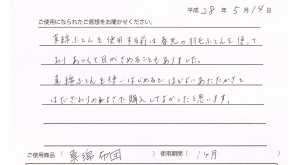 平成 28年 5月14日
ご使用になられたご感想をお聞かせください。
真綿ふとんを使用する前は春先の羽毛ふとんを使って
おりあつくて目がさめることもありました。
真綿ふとんを使いはじめると ほどよいあたたかさと
はださわりのよさで購入してよかったと思います。
ご使用商品（真綿布団）使用期間（1ヶ月